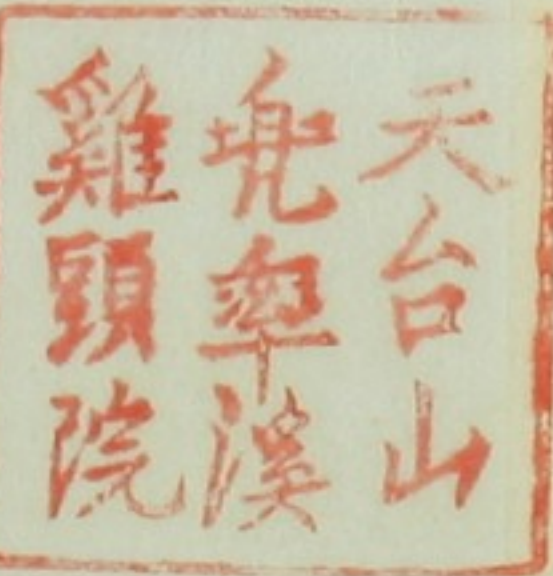 天台山
兠率溪
雞頭院